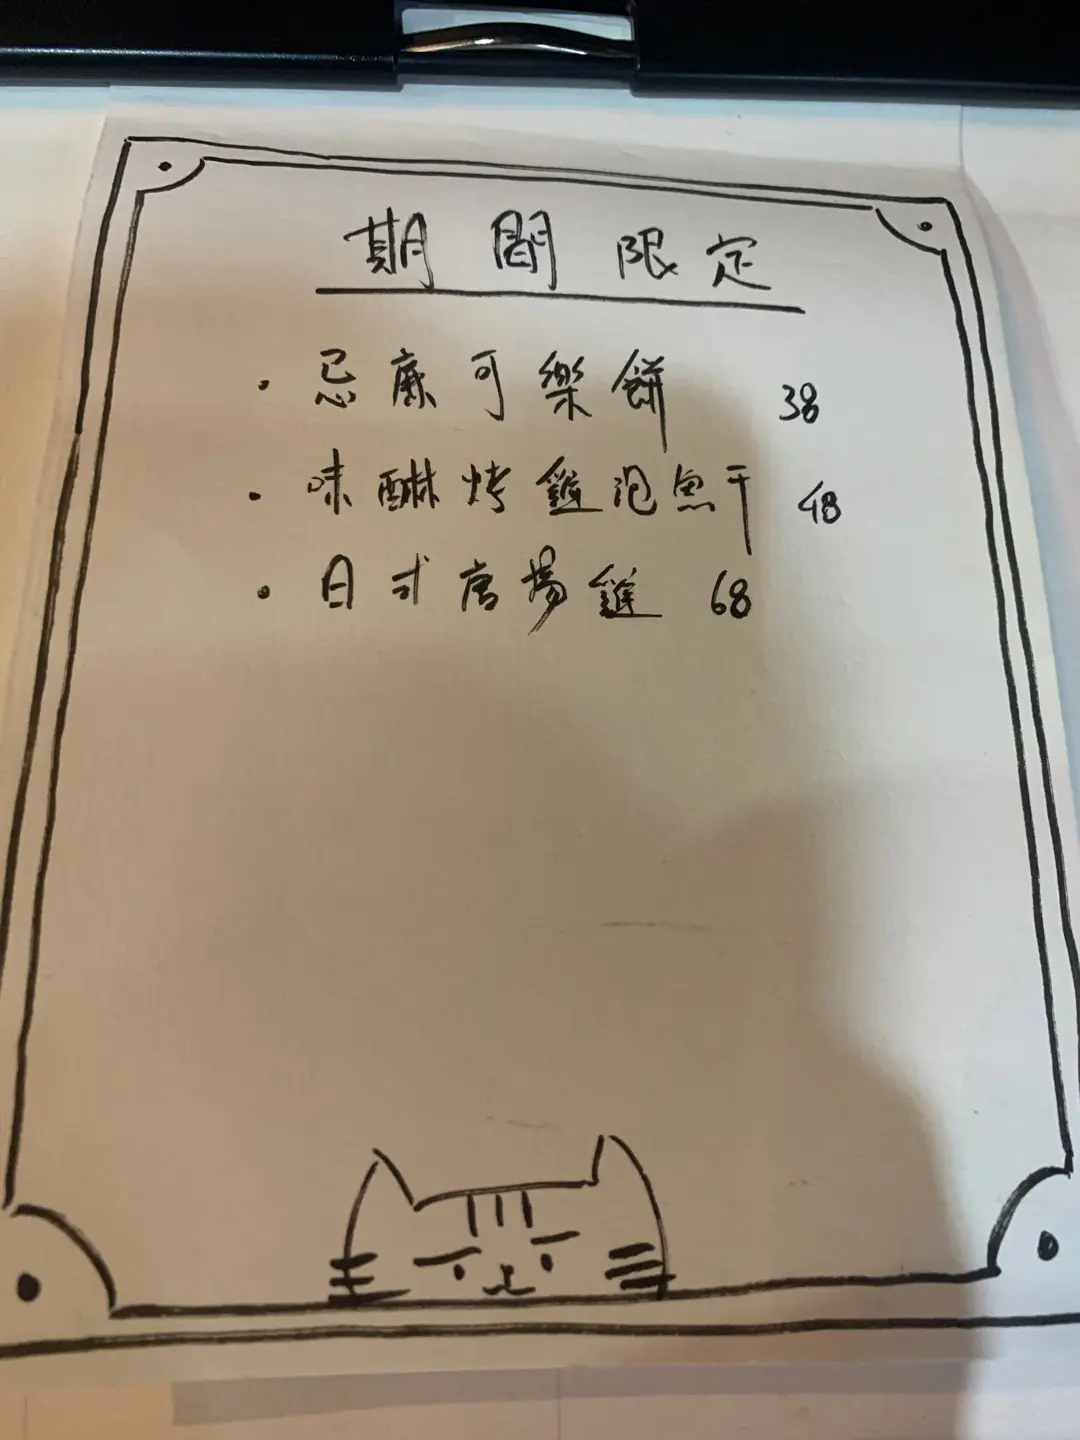 期間限定
・忌廉可樂餅 38
・味醂烤雞泡魚干 48
・日式唐揚雞 68